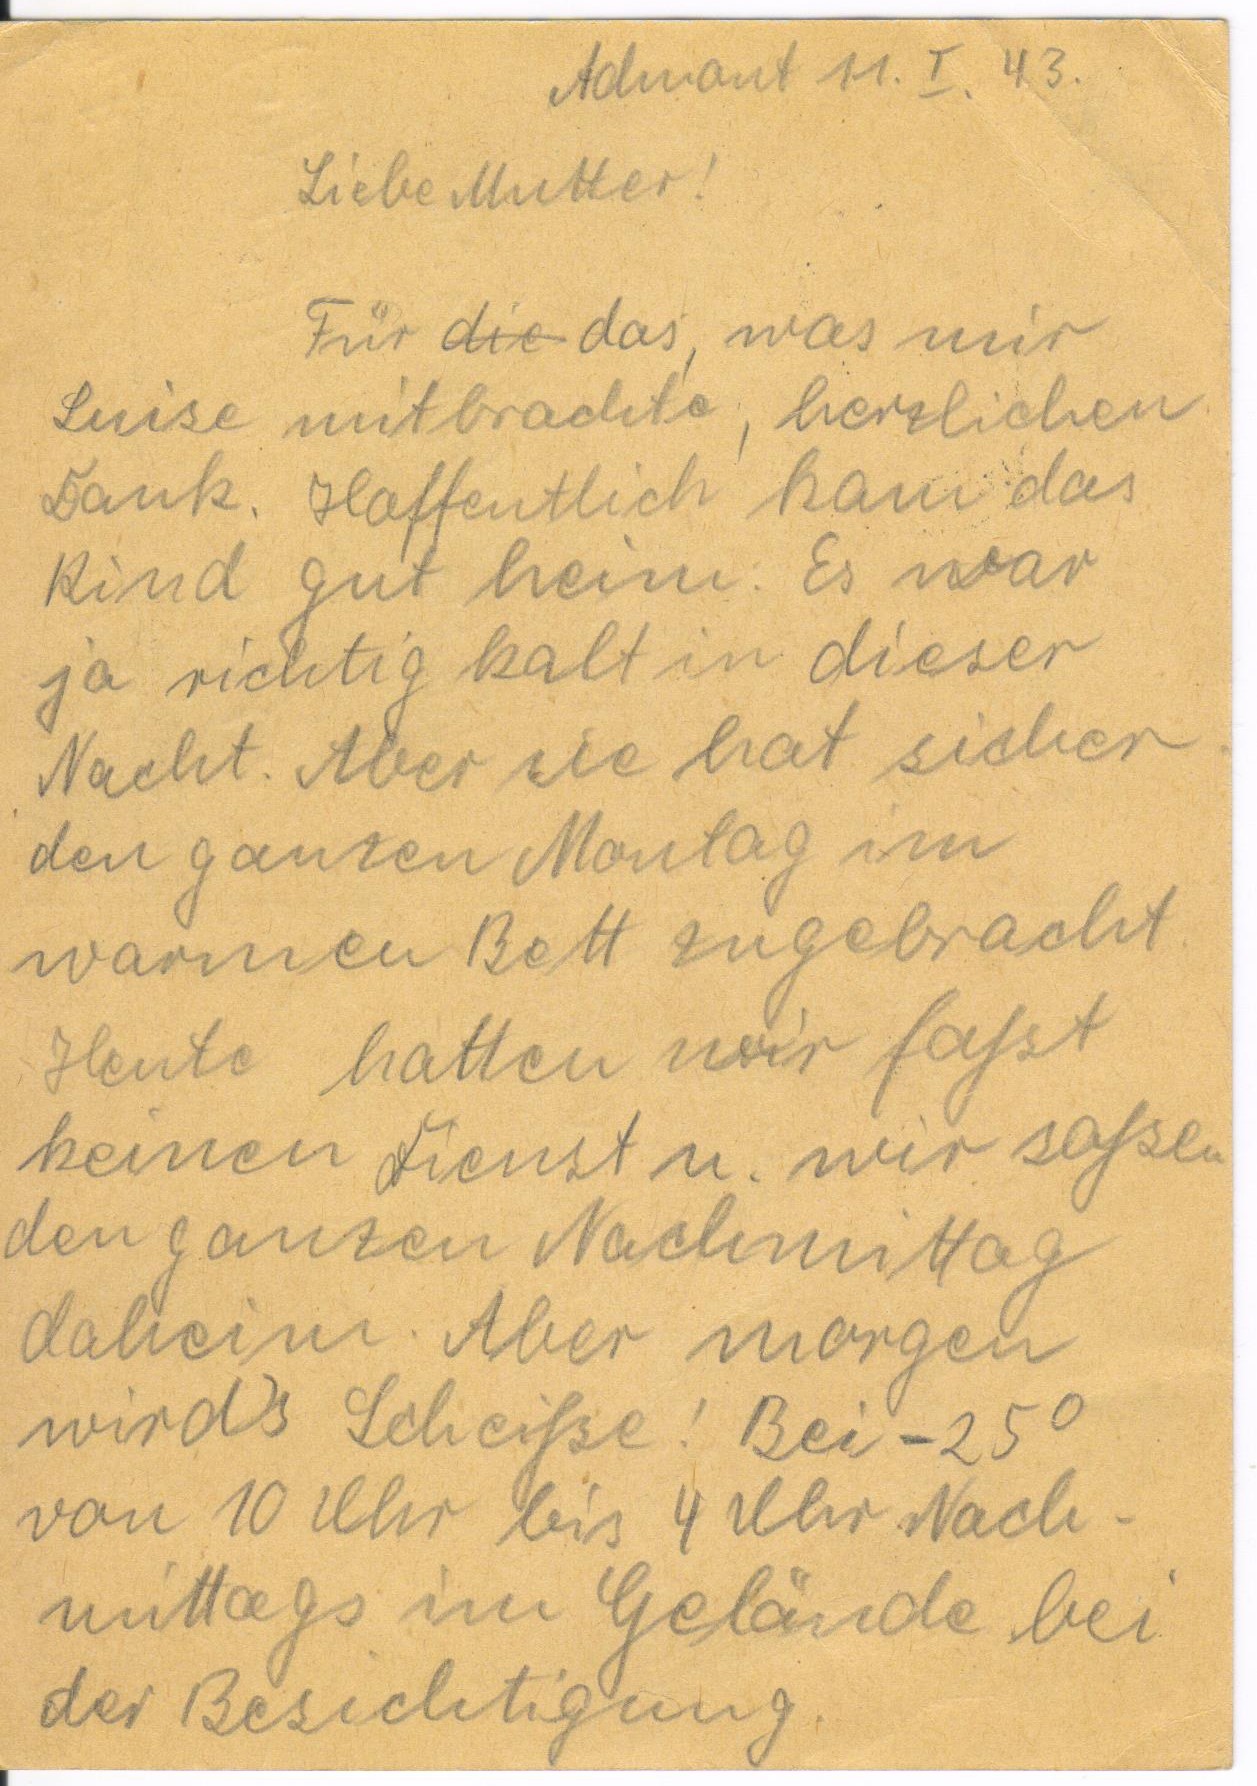 Admont 11. I. 43.
Liebe Mutter!
Für die das, was mir
Luise mitbrachte, herzlichen
Dank. Hoffentlich kam das
Kind gut heim. Es war
ja richtig kalt in dieser
Nacht. Aber sie hat sicher
den ganzen Montag im
warmen Bett zugebracht
Heute hatten wir faßt
keinen Dienst u. wir saßen
den ganzen Nachmittag
daheim. Aber morgen
wird's Scheiße! Bei -25°
von 10 Uhr bis 4 Uhr Nach-
mittags im Gelände bei
der Besichtigung.